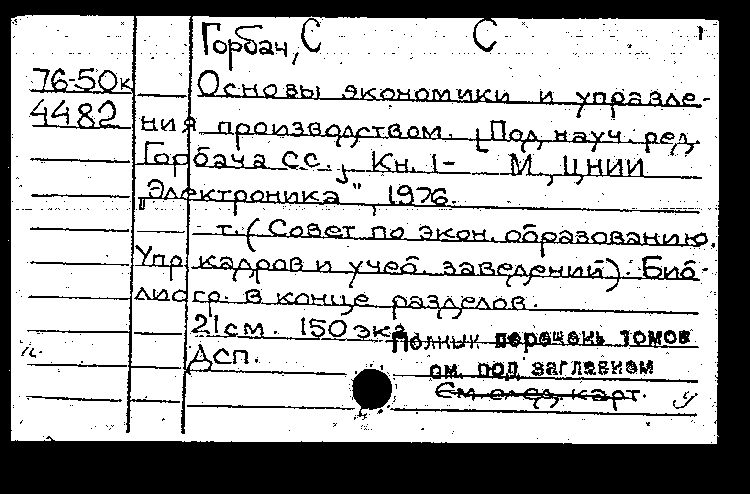 Горбач, С С
76-50к Основы экономики и управле-
4482 ния производством. [Под науч. ред.
Горбача С.С., Кн. 1- М, ЦНИИ
„Электроника", 1976.
т. (Совет по экон. образованию.
Упр кадров и учеб. заведений). Биб-
лиогр. в конце разделов.
21см. 150 экз
Полный перечень томов
Дсп.
см. под заглавием
См. след. карт.